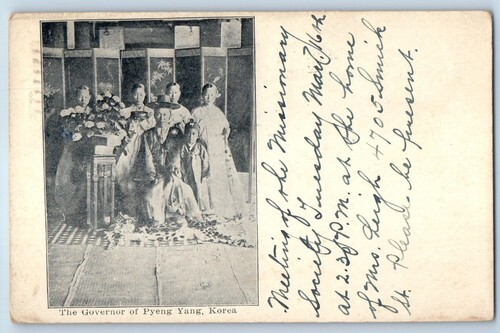 The Governor of Pyeng Yang, Korea
Meeting of the Missionary
Society Tuesday Mar. 16th
at 2.30 P.M. at the home
of Mrs. Leigh 4705 Smick
St. Please be present.